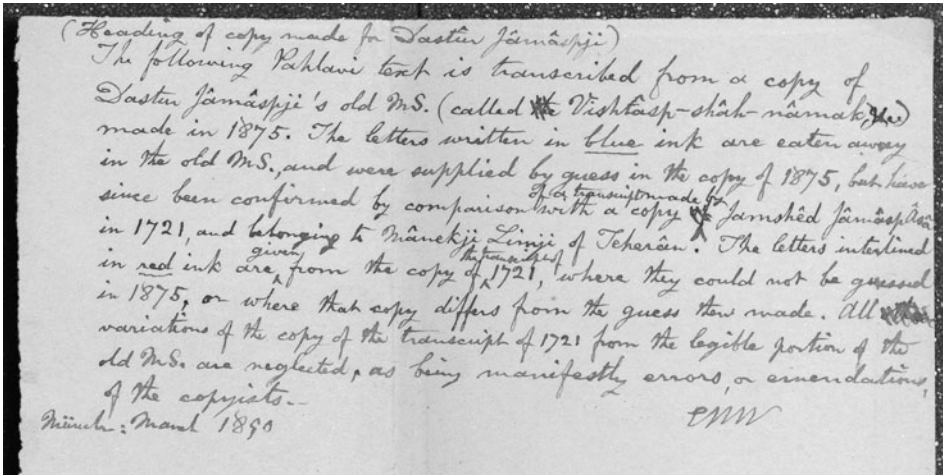 (Heading of copy made for Dastûr Jâmâspji)
The following Pahlavi text is transcribed from a copy of
Dastûr Jâmâspji's old MS. (called Vishtâsp-shâh-nâmak,
made in 1875. The letters written in blue ink are eaten away
in the old MS., and were supplied by guess in the copy of 1875, but have
since been confirmed by comparison with a copy of a transcript made by Jamshêd Jâmâsp
in 1721, and belonging to Mânekji Limji of Teherân. The letters interlined
in red ink are given from the copy of the transcript of 1721, where they could not be guessed
in 1875, or where that copy differs from the guess then made. All
variations of the copy of the transcript of 1721 from the legible portion of the
old MS. are neglected, as being manifestly errors, or emendations,
of the copyists.
EWW
: March 1890